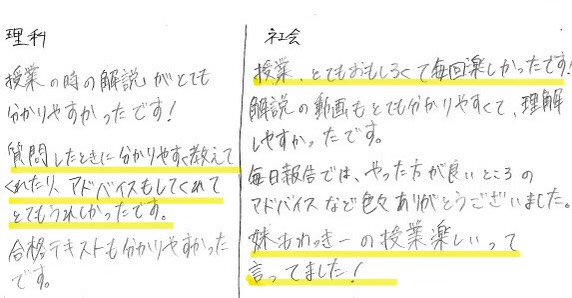 理科
授業の時の解説がとても
分かりやすかったです!
質問したときに分かりやすく教えて
くれたり、アドバイスもしてくれて
とてもうれしかったです。
合格テキストも分かりやすかった
です。
社会
授業、とてもおもしろくて毎回楽しかったです!
解説の動画もとても分かりやすくて、理解
しやすかったです。
毎日報告では、やった方が良いところの
アドバイスなど色々ありがとうございました。
妹もれっきーの授業楽しいって
言ってました!